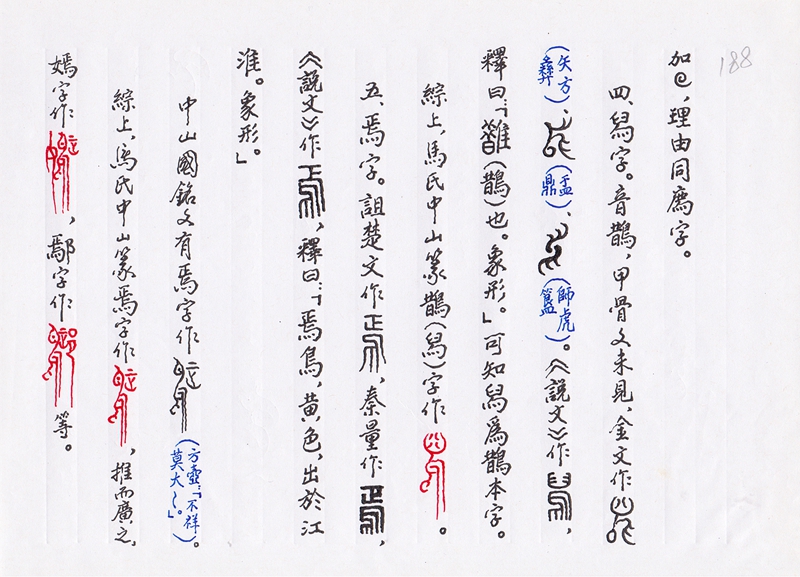 188
加，理由同廌字。
四、舄字。音鵲，甲骨文未見，金文作
（矢方彝）、（盂鼎）、（師虎簋）。《說文》作，
釋曰：「䧿（鵲）也。象形。」可知舄爲鵲本字。
綜上，馬氏中山篆鵲（舄）字作。
五、焉字。詛楚文作，秦量作，
《說文》作，釋曰：「焉鳥，黃色，出於江
淮。象形。」
中山國銘文有焉字作（方壺：「不祥莫大～」。）。
綜上，馬氏中山篆焉字作，推而廣之，
嫣字作，鄢字作等。